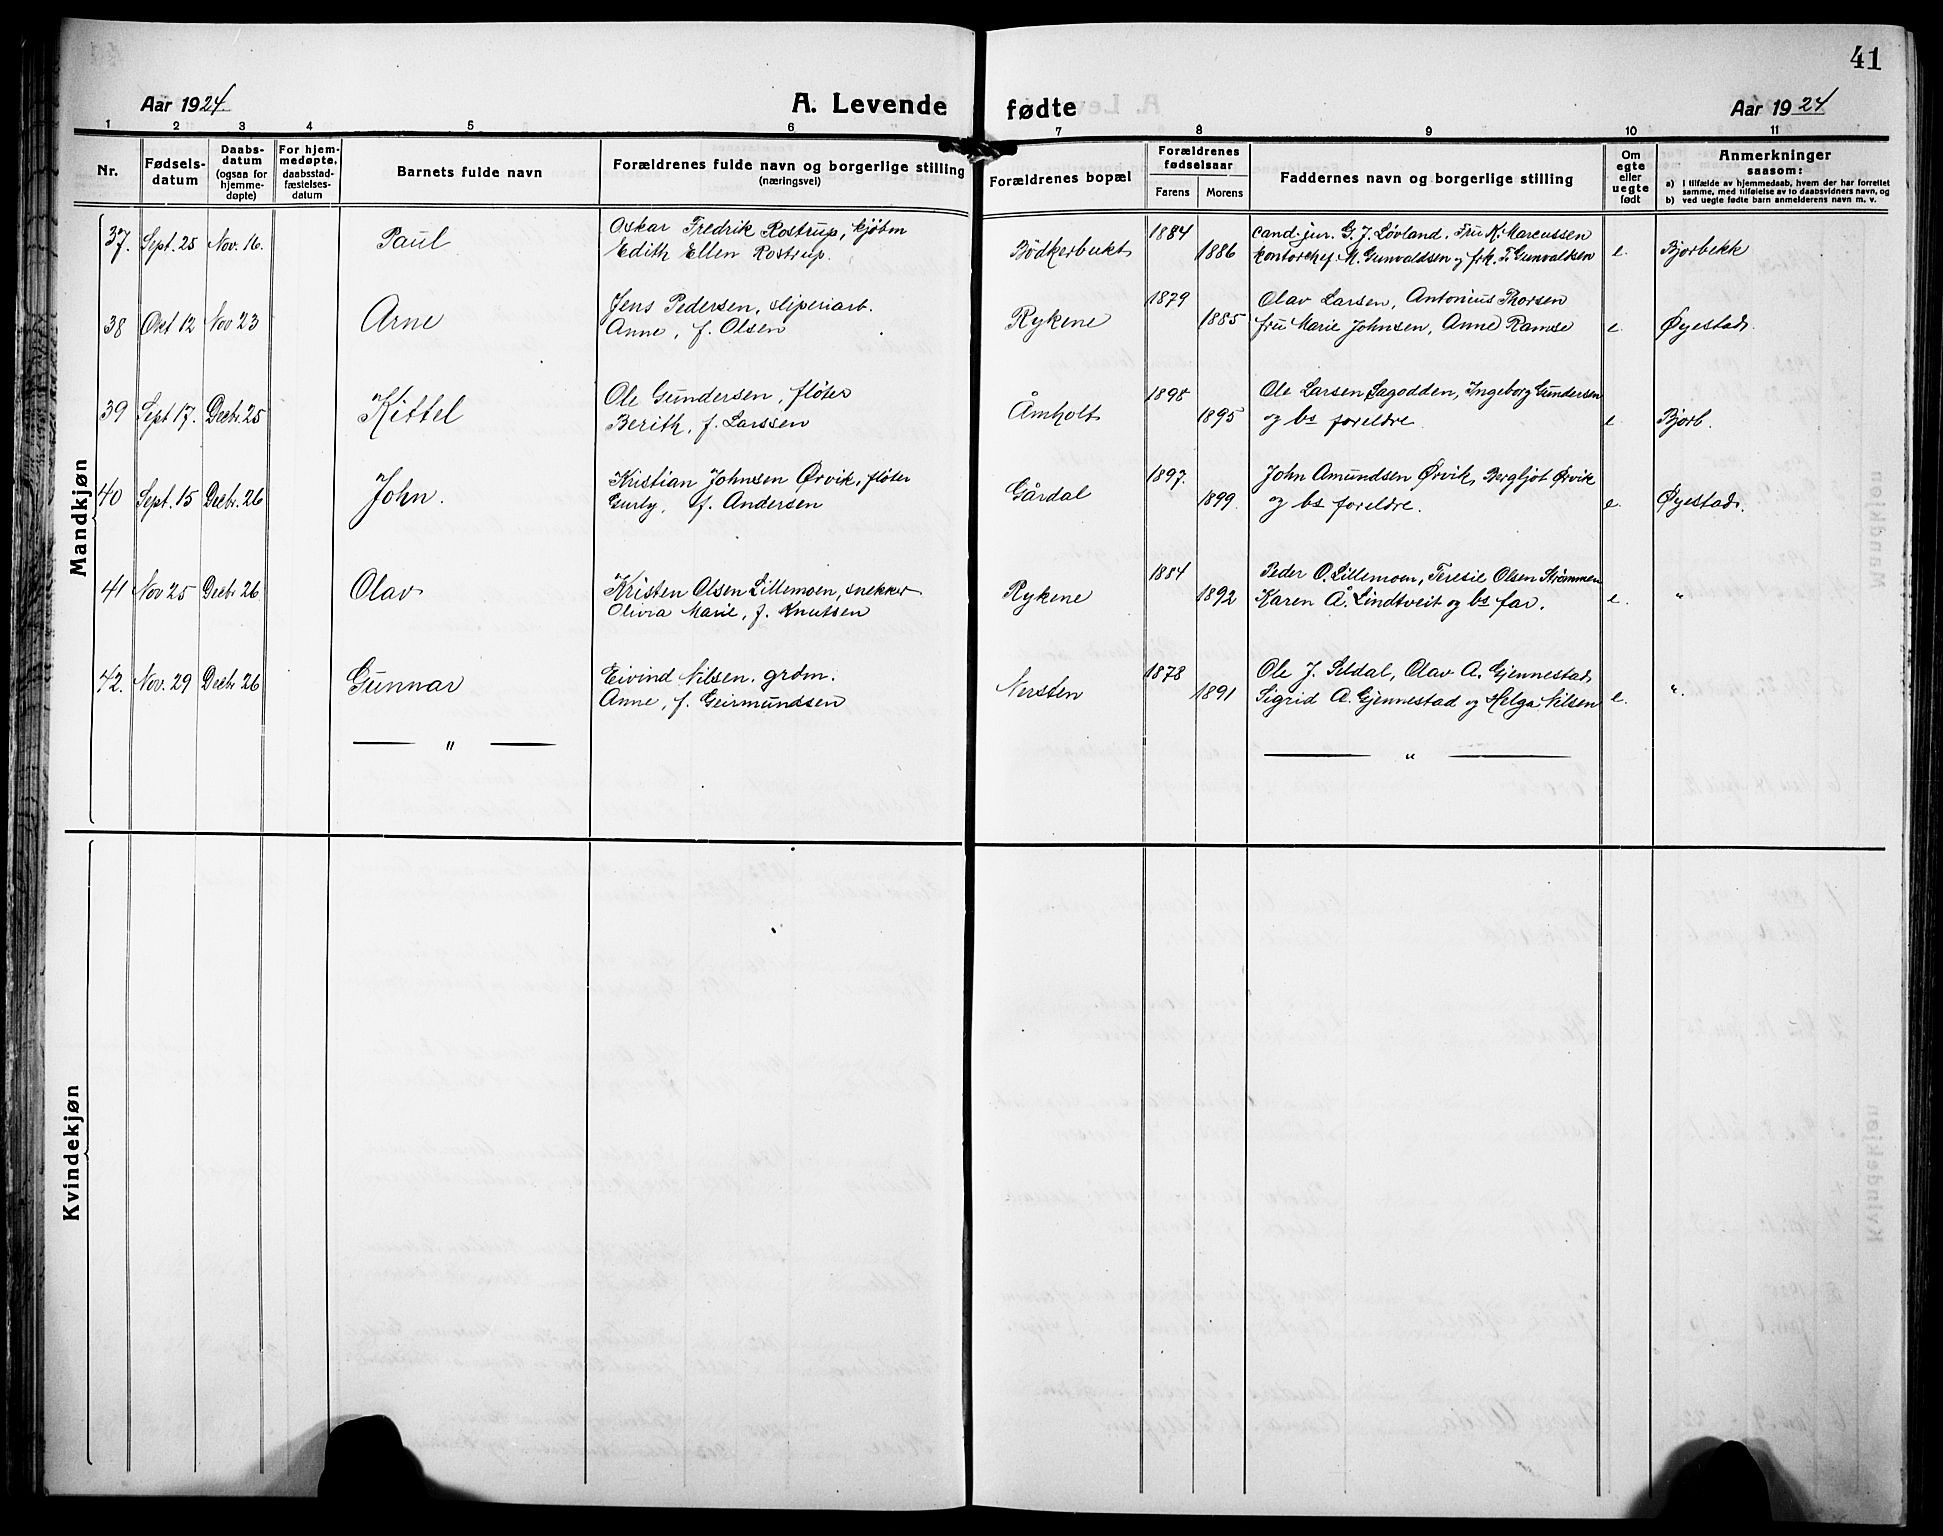 41
Aar 1924 A. Levende fødte Aar 1924
1 2 3 4 5 6 7 8 9 10 11
Nr. Fødselsdatum Daabsdatum (ogsaa for hjemmedøpte) For hjemmedøpte, daabsstadfæstelsesdatum Barnets fulde navn Forældrenes fulde navn og borgerlige stilling (næringsvei) Forældrenes bopæl Forældrenes fødselsaar Farens Morens Faddernes navn og borgerlige stilling Om egte eller uegte født Anmerkninger saasom: a) I tilfælde av hjemmedaab, hvem der har forrettet samme, med tilføielse av to daabsvidners navn, og b) ved uegte fødte barn anmelderens navn m. v.
Mandkjøn
37. Sept. 25 Nov. 16. Paul Oskar Fredrik Rostrup, kjøbm Bødkerbukt 1884 cand. jur. G. J. Løvland, Fru K. Marcussen
Edith Ellen Rostrup. 1886 kontorchef M. Gunvaldsen og frk. T. Gunvaldsen e. Bjorbekk
38 Okt 12 Nov 23 Arne Jens Pedersen, sliperiarb. Rykene 1879 Olav Larsen, Antonius Thorsen
Anne, f. Olsen 1885 fru Marie Johnsen, Anne Ramse e Øyestad.
39 Sept 17. Decbr. 25 Kittel Ole Gundersen, fløter Åmholt 1898 Ole Larsen Sagodden, Ingeborg Gundersen
Berith, f. Larssen 1895 og bs foreldre. e Bjorb.
40 Sept. 15 Decbr. 26 John. Kristian Johnsen Ørvik, fløter Gårdal 1897. John Amundsen Ørvik, Bergljot Ørvik
Gurly, f. Andersen 1899. og bs foreldre. e. Øyestad.
41 Nov 25 Decbr 26 Olav Kristen Olsen Lillemoen, snekker Rykene 1884 Peder O. Lillemoen, Teresie Olsen Strømmen
Olivia Marie, f. Knutsen 1892 Karen Å. Lindtveit og bs far. e. "
42. Nov. 29 Decbr 26 Gunnar Eivind Nilsen, grdm. Nersten 1878 Ole J. Seldal, Olav A. Gjennestad
Anne, f. Geirmundsen 1891 Sigrid A. Gjennestad og Helga Nilsen e. ".
— " — — " —
Kvindekjøn